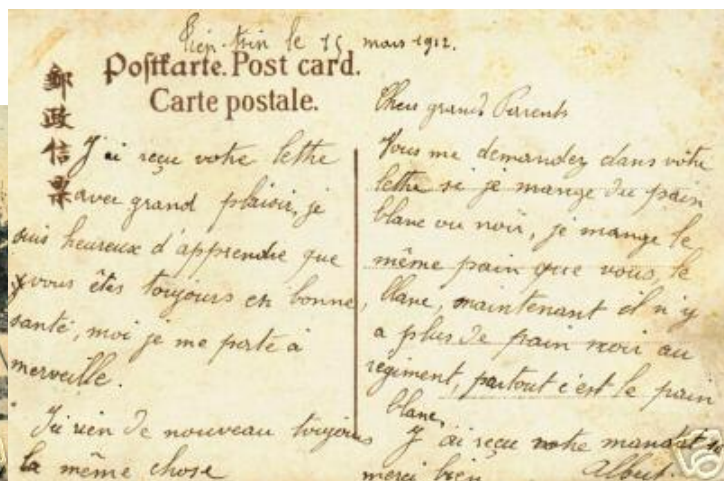 Tien-Tsin le 15 mars 1912.
Postkarte. Post card.
Carte postale.
郵政信票
J'ai reçu votre lettre
avec grand plaisir, je
suis heureux d'apprendre que
vous êtes toujours en bonne
santé, moi je me porte à
merveille.
J'ai rien de nouveau toujours
la même chose
Chers grands Parents
Vous me demandez dans votre
lettre si je mange du pain
blanc ou noir, je mange le
même pain que vous, le
blanc, maintenant il n'y
a plus de pain noir au
régiment, partout c'est le pain
blanc,
J'ai reçu votre mandat
merci bien Albert.